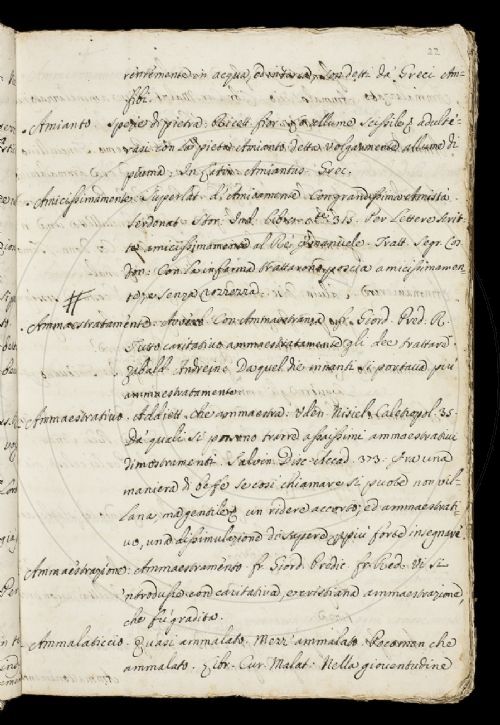 22
rentemente in acqua, ed in terra, son dett. da' Greci An-
fibi.
Amianto. Spezie di pietra. Ricett. fior. 20 allume scissile è adulte-
rasi con la pietra Amianto detta volgarmente allume di
piuma. In Latin. Amiantus. Grec.
Amicissimamente. Superlat. d'Amicamente. Con grandissima Amistà
Serdonat. Stor. Ind. Libro 8tt. 315. Per Lettere scrit-
te amicissimamente al Re Emanuele. Tratt. Segr. Co
Don. Con la inferma trattarono poscia amicissimamen-
te, e senza rozzezza.
Ammaestratamente. Avverb. Con Ammaestranza. fr. Giord. Pred. R.
Tutto caritativo ammaestratamente gli dee trattare
Zibald. Andrein. Da quel die innanti si portava più
ammaestratamente
Ammaestrativo. Addiett. che ammaestra. Uden. Nisiel. Caletropol. 35
Da queli si ponno trarre assaissimi ammaestrativi
dimostramenti. Salvin. Disc. Accad. 373. Fra una
maniera di befe se così chiamare si puote non vil-
lana, ma gentile, un ridere accorto, ed ammaestrati-
vo, una dissimulazione di sapere, per più forte insegnare.
Ammaestrazione. Ammaestramento. fr. Giord. Predic. fr. Red. Vi s'-
introdusse con caritativa, e cristiana ammaestrazione,
che fu gradita.
Ammalaticcio. Quasi ammalato. Mezz'ammalato. Pocomen che
ammalato. Libr. Cur. Malat. Nella gioventudine